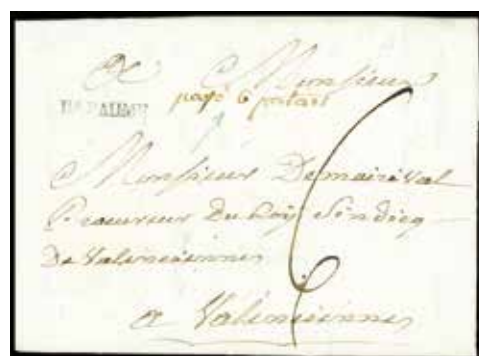 A Monsieur
BAPAUME payé 6 patars
Monsieur Demaizival
Procureur Du Roÿ Sindicq
De Valenciennes
a Valenciennes
6